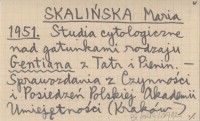 SKALIŃSKA Maria
1951. Studia cytologiczne
nad gatunkami rodzaju
Gentiana z Tatr i Pienin. —
Sprawozdania z Czynności
i Posiedzeń Polskiej Akademii
Umiejętności (Kraków)